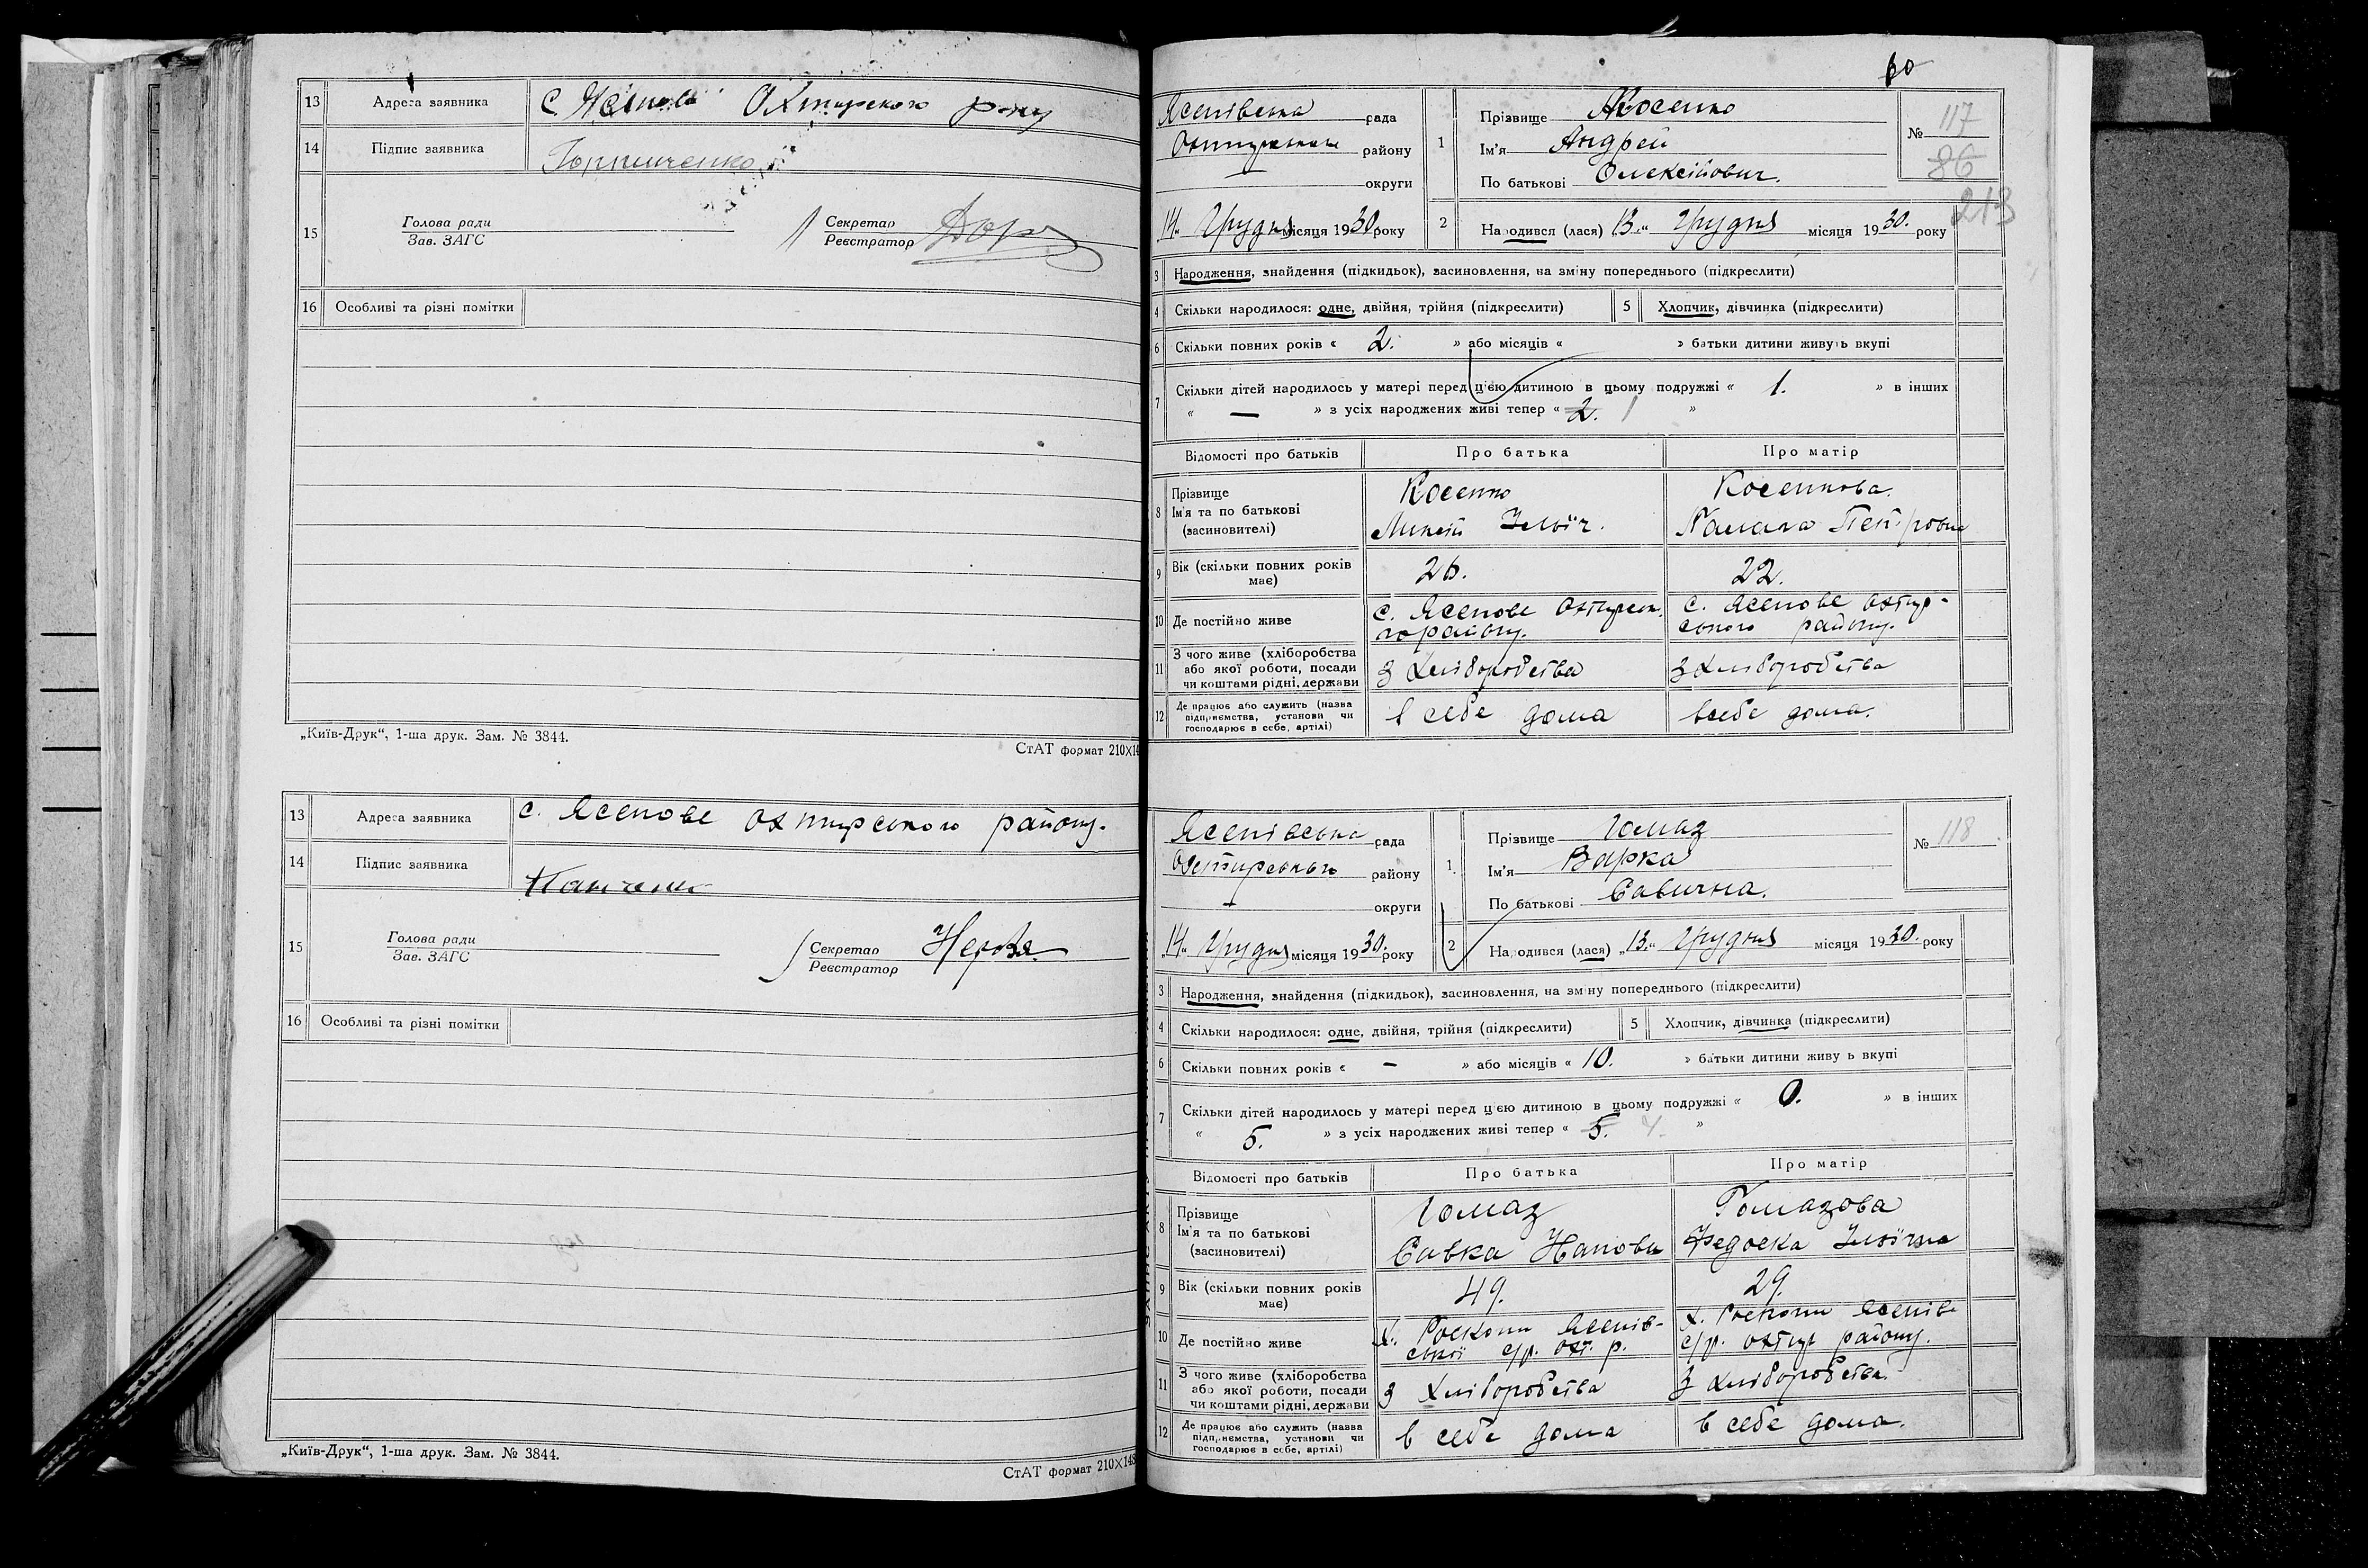 13 Адреса заявника с. Ясенове Охтирського р-ну
14 Підпис заявника
15 Голова ради
Зав. ЗАГС
Секретар
Реєстратор
16 Особливі та різні помітки
„Київ-Друк“, 1-ша друк. Зам. № 3844.
СтАТ формат 210X14
13 Адреса заявника с. Ясенове Охтирського району.
14 Підпис заявника
15 Голова ради
Зав. ЗАГС
Секретар
Реєстратор
16 Особливі та різні помітки
„Київ-Друк“, 1-ша друк. Зам. № 3844.
СтАТ формат 210X148
60
Ясенівська рада
району
округи
14 Грудня місяця 1930 року
1 Прізвище Косенко
Ім'я Андрей
По батькові Олексійович.
№ 117
86
213
2 Народився (лася) 13 Грудня місяця 1930. року
3 Народження, знайдення (підкидьок), засиновлення, на зміну попереднього (підкреслити)
4 Скільки народилося: одне, двійня, трійня (підкреслити) 5 Хлопчик, дівчинка (підкреслити)
6 Скільки повних років « 2. » або місяців « » батьки дитини живуть вкупі
7 Скільки дітей народилось у матері перед цією дитиною в цьому подружжі « 1. » в інших
« — » з усіх народжених живі тепер « 2. 1 »
Відомості про батьків Про батька Про матір
8 Прізвище
Ім'я та по батькові
(засиновителі)
Косенко
Ілліч.
Косенкова.
Петровна
9 Вік (скільки повних років має) 26. 22.
10 Де постійно живе
с. Ясенове Охтирсь-
го району.
с. Ясенове Охтир-
ського району.
11 З чого живе (хліборобства
або якої роботи, посади
чи коштами рідні, держави
З хліборобства З хліборобства
12 Де працює або служить (назва
підприємства, установи чи
господарює в себе, артілі)
в себе дома в себе дома.
Ясенівська рада
Охтирського району
округи
„14“ Грудня місяця 1930. року
1. Прізвище Гомаз
Ім'я Варка
По батькові Савична.
№ 118
2 Народився (лася) „13.“ Грудня місяця 1930. року
3 Народження, знайдення (підкидьок), засиновлення, на зміну попереднього (підкреслити)
4 Скільки народилося: одне, двійня, трійня (підкреслити) 5 Хлопчик, дівчинка (підкреслити)
6 Скільки повних років « - » або місяців « 10. » батьки дитини живу ь вкупі
7 Скільки дітей народилось у матері перед цією дитиною в цьому подружжі « 0. » в інших
« 5. » з усіх народжених живі тепер « 5. 4. »
Відомості про батьків Про батька Про матір
8 Прізвище
Ім'я та по батькові
(засиновителі)
Гомаз
Савка
Гомазова
Федоска Іллїчна
9 Вік (скільки повних років має) 49. 29.
10 Де постійно живе
х. Роскопи Ясенів-
ської с/р. охт. р.
х. Роскопи Ясенів
с/р. охтир району.
11 З чого живе (хліборобства
або якої роботи, посади
чи коштами рідні, держави
З хліборобства З хліборобства.
12 Де працює або служить (назва
підприємства, установи чи
господарює в себе, артілі)
в себе дома в себе дома.